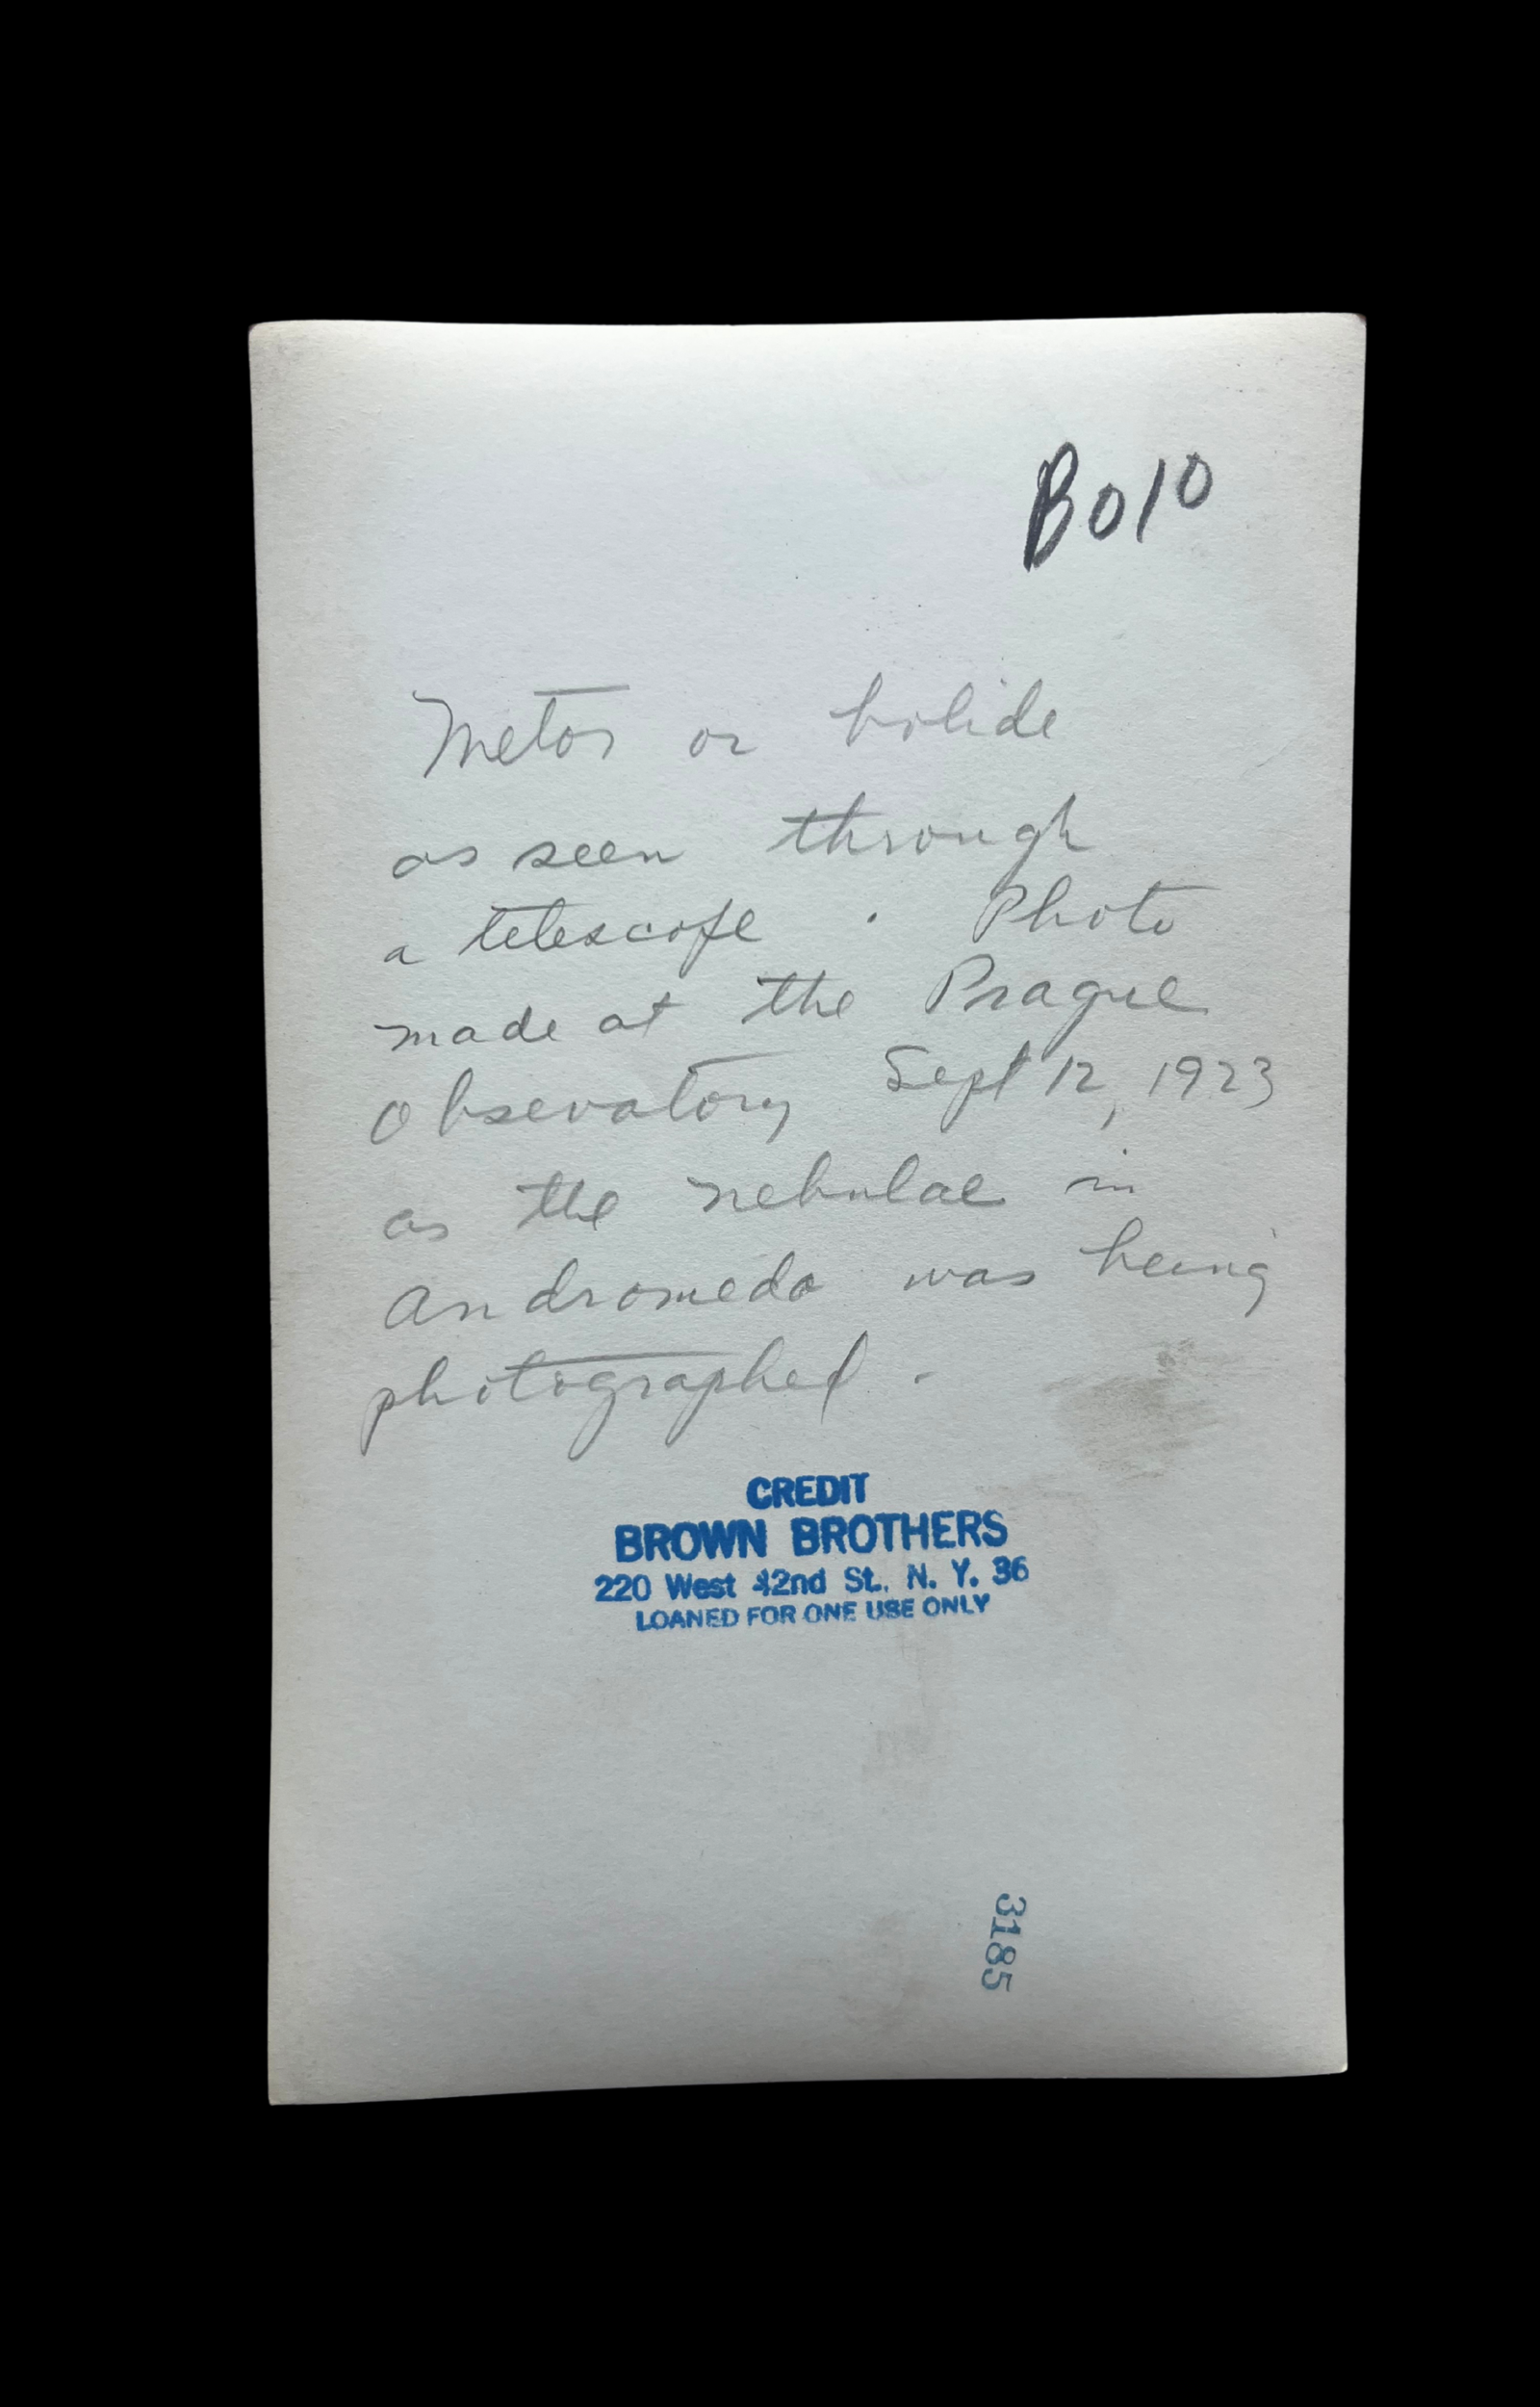 B010
Metor or bolide
as seen through
a telescope . Photo
made at the Prague
Obsevatory Sept 12, 1923
as the nebulae in
Andromeda was being
photographed.
CREDIT
BROWN BROTHERS
220 West 42nd St. N. Y. 36
LOANED FOR ONE USE ONLY
3185